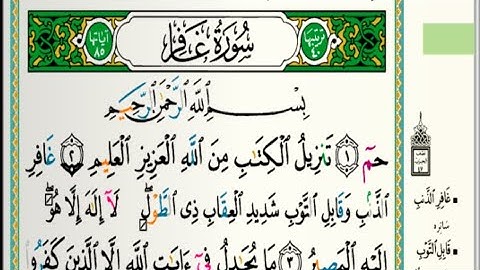 ترتيبها ٤٠
سُورَةُ غَافِرٍ
آياتها ٨٥
بِسْمِ ٱللَّهِ ٱلرَّحْمَٰنِ ٱلرَّحِيمِ
حمٓ ۝١ تَنزِيلُ ٱلْكِتَٰبِ مِنَ ٱللَّهِ ٱلْعَزِيزِ ٱلْعَلِيمِ ۝٢ غَافِرِ
ٱلذَّنۢبِ وَقَابِلِ ٱلتَّوْبِ شَدِيدِ ٱلْعِقَابِ ذِى ٱلطَّوْلِۖ لَآ إِلَٰهَ إِلَّا هُوَۖ
إِلَيْهِ ٱلْمَصِيرُ ۝٣ مَا يُجَٰدِلُ فِىٓ ءَايَٰتِ ٱللَّهِ إِلَّا ٱلَّذِينَ كَفَرُوا۟
غَافِرِ الذَّنْبِ
سَاتِرِه
قَابِلِ التَّوْبِ